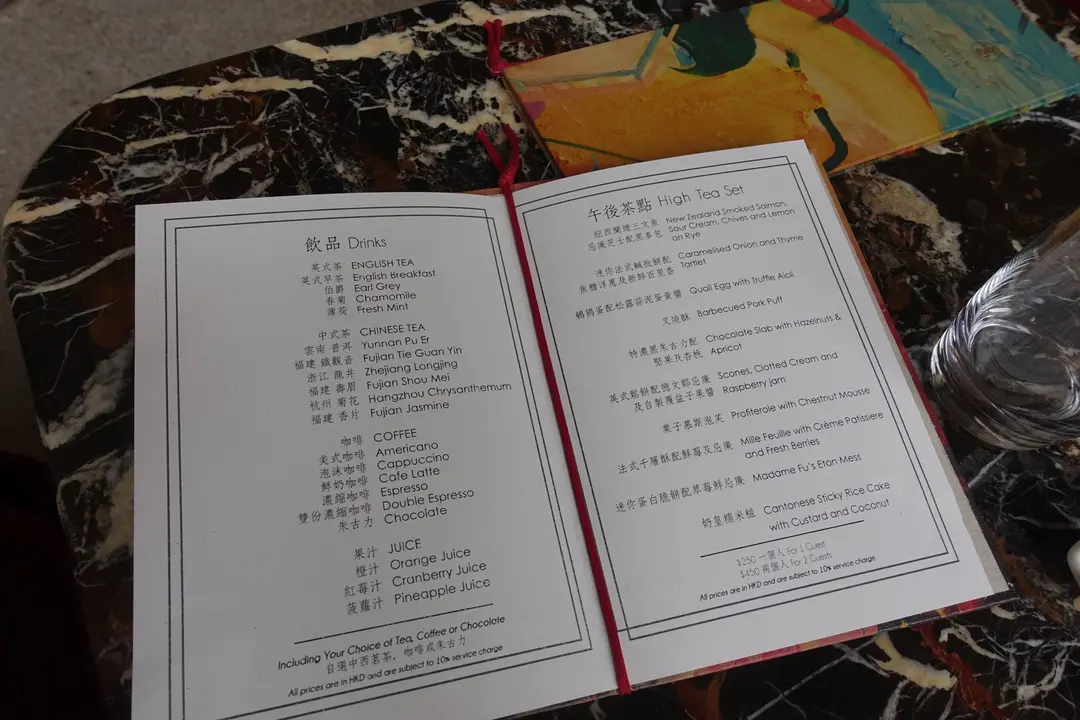 飲品 Drinks
英式茶 ENGLISH TEA
英式早茶 English Breakfast
伯爵 Earl Grey
春菊 Chamomile
薄荷 Fresh Mint
中式茶 CHINESE TEA
雲南 普洱 Yunnan Pu Er
福建 鐵觀音 Fujian Tie Guan Yin
浙江 龍井 Zhejiang Longjing
福建 壽眉 Fujian Shou Mei
杭州 菊花 Hangzhou Chrysanthemum
福建 香片 Fujian Jasmine
咖啡 COFFEE
美式咖啡 Americano
泡沫咖啡 Cappuccino
鮮奶咖啡 Cafe Latte
濃縮咖啡 Espresso
雙份濃縮咖啡 Double Espresso
朱古力 Chocolate
果汁 JUICE
橙汁 Orange Juice
紅莓汁 Cranberry Juice
菠蘿汁 Pineapple Juice
Including Your Choice of Tea, Coffee or Chocolate
自選中西茗茶，咖啡或朱古力
All prices are in HKD and are subject to 10% service charge
午後茶點 High Tea Set
紐西蘭煙三文魚 New Zealand Smoked Salmon,
忌廉芝士配黑多包 Sour Cream, Chives and Lemon
on Rye
迷你法式鹹批餅配 Caramelised Onion and Thyme
焦糖洋蔥及新鮮百里香 Tartlet
鵪鶉蛋配松露蒜泥蛋黃醬 Quail Egg with Truffle Aioli
叉燒酥 Barbecued Pork Puff
特濃黑朱古力配 Chocolate Slab with Hazelnuts &
堅果及杏桃 Apricot
英式鬆餅配德文郡忌廉 Scones, Clotted Cream and
及自製覆盆子果醬 Raspberry jam
栗子慕斯泡芙 Profiterole with Chestnut Mousse
法式千層酥配鮮莓及忌廉 Mille Feuille with Crème Patissiere
and Fresh Berries
迷你蛋白脆餅配草莓鮮忌廉 Madame Fu's Eton Mess
奶皇糯米糍 Cantonese Sticky Rice Cake
with Custard and Coconut
$250 一個人 For 1 Guest
$450 兩個人 For 2 Guests
All prices are in HKD and are subject to 10% service charge